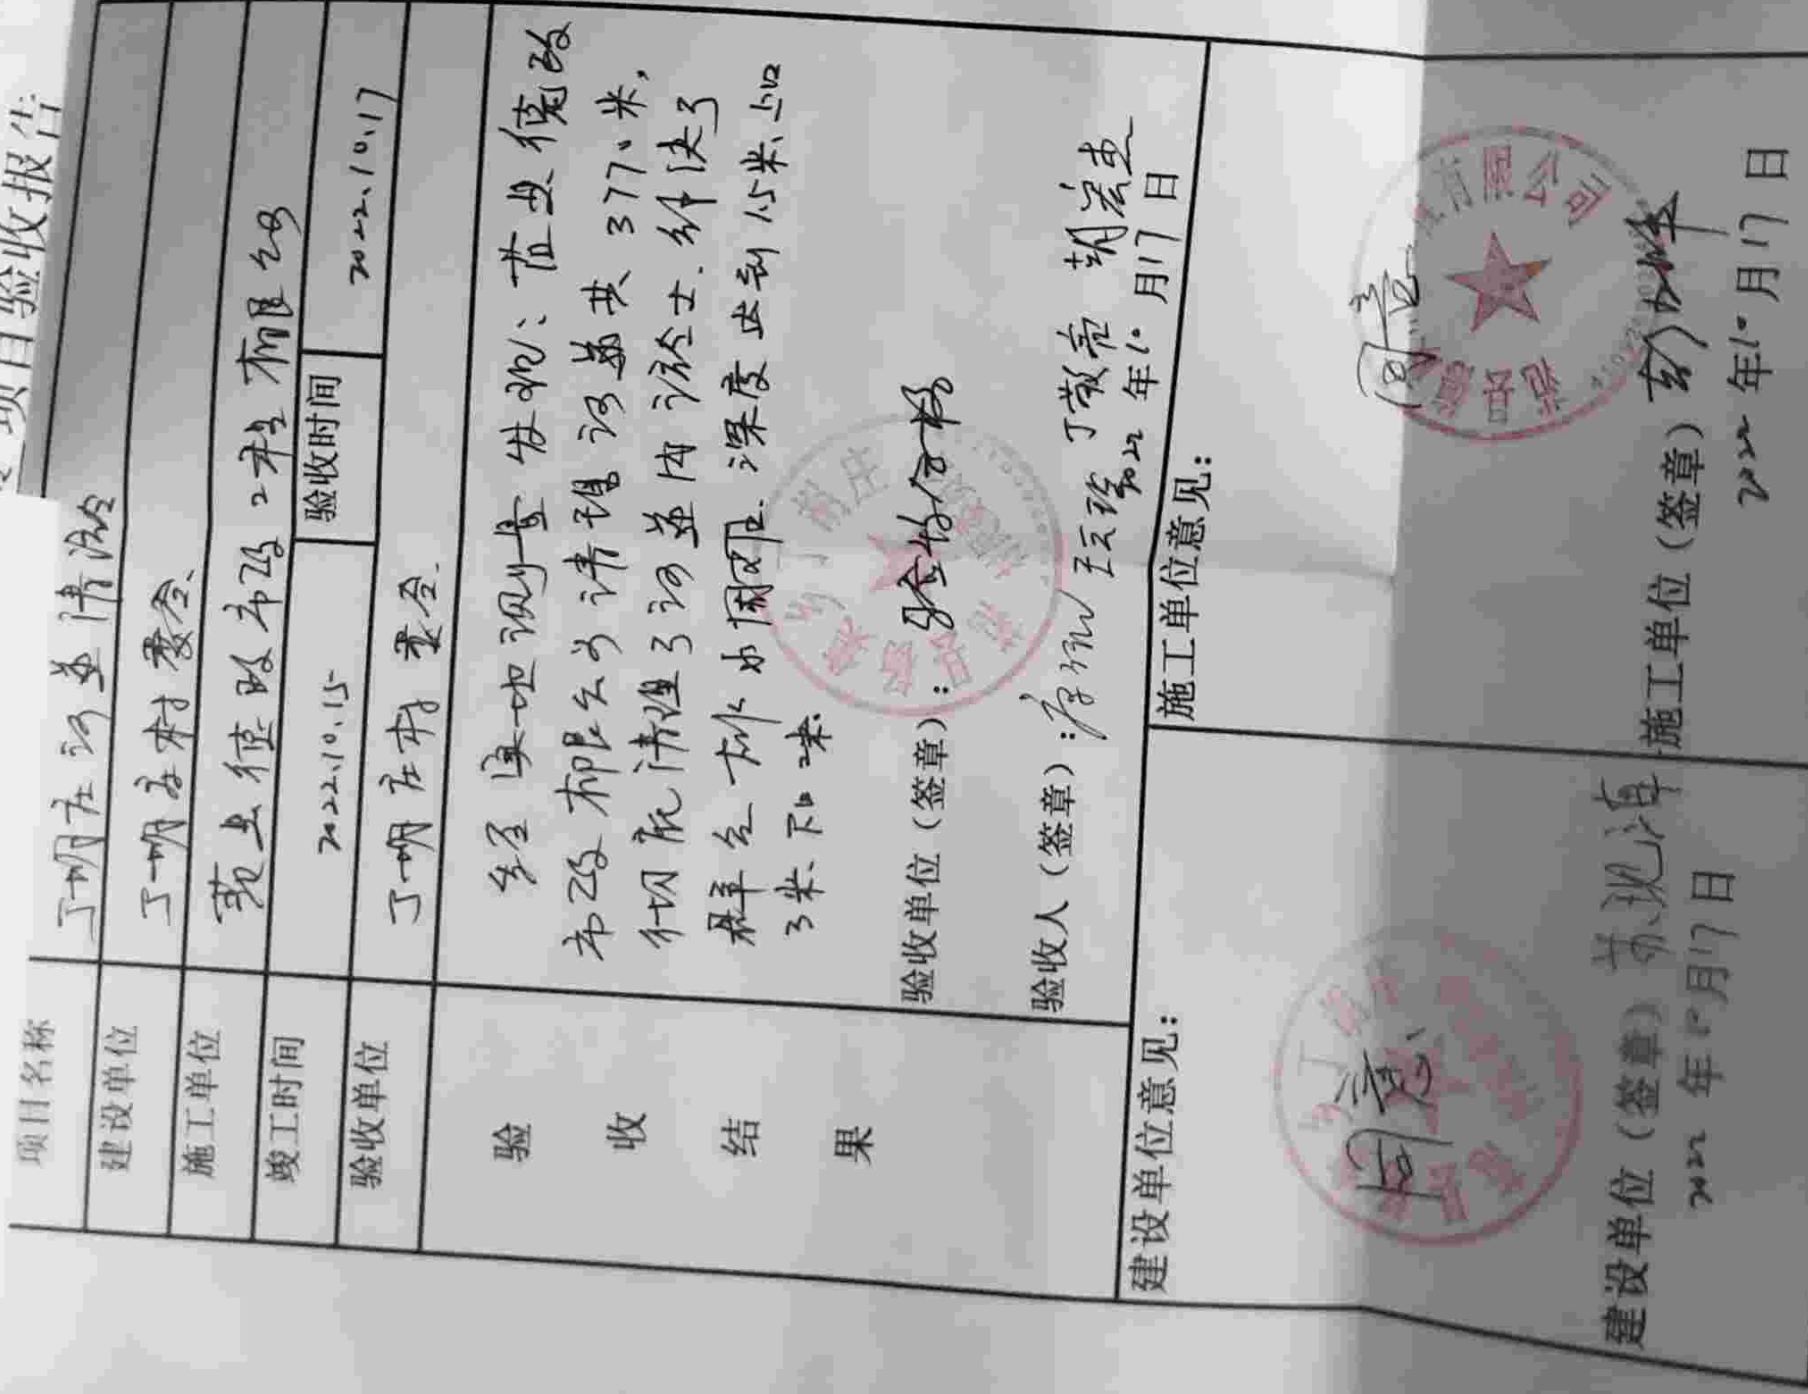 项目验收报告
项目名称 丁明庄沟渠清淤
建设单位 丁明庄村委会
施工单位 范县恒政市政工程有限公司
竣工时间 2022.10.15 验收时间 2022.10.17
验收单位 丁明庄村委会.
验收结果
经实地测量发现:范县德政
市政有限公司清理沟渠共3770米,
彻底清理了沟渠内淤土.解决了
群众排水困难.深度达到1.5米、上口
3米、下口2米.
验收单位(签章):
验收人(签章): 丁敬亮 胡宏杰
2022年10月17日
建设单位意见:
同意、
建设单位(签章) 苏现海
2022年10月17日
施工单位意见:
同意
施工单位(签章)
2022年10月17日